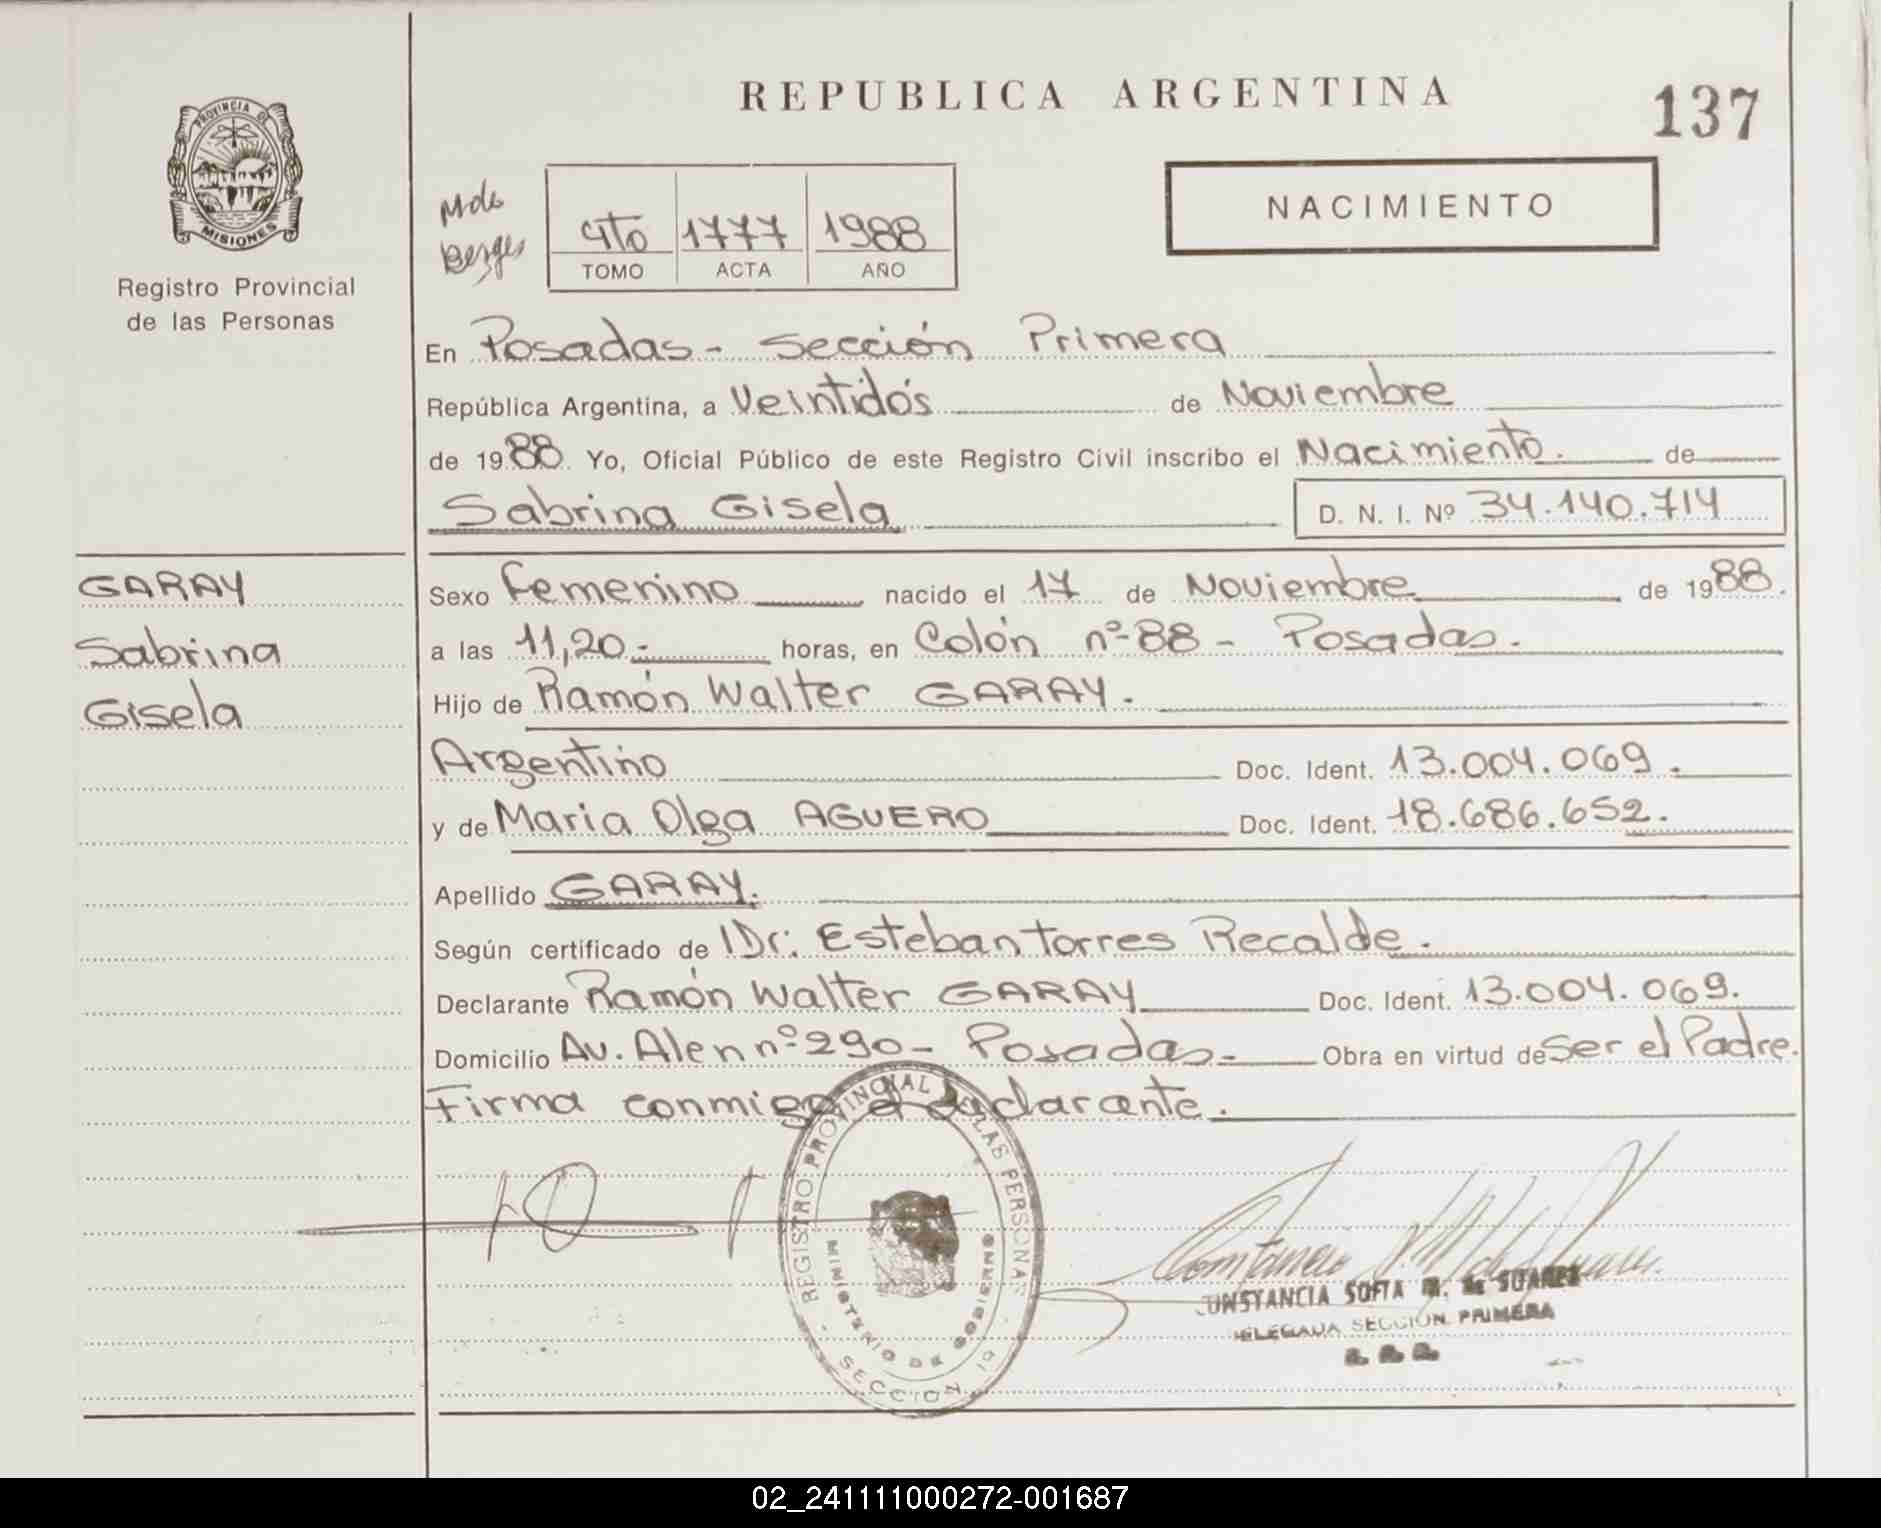 REPUBLICA ARGENTINA
137
PROVINCIA DE
MISIONES
Registro Provincial
de las Personas
4to 1777 1988
TOMO ACTA AÑO
NACIMIENTO
En Posadas - Sección Primera
República Argentina, a Veintidós de Noviembre
de 1988. Yo, Oficial Público de este Registro Civil inscribo el Nacimiento. de
Sabrina Gisela D. N. I. Nº 34.140.714
GARAY
Sabrina
Gisela
Sexo Femenino nacido el 17 de Noviembre de 1988.
a las 11,20.- horas, en Colón nº 88 - Posadas.
Hijo de Ramón Walter GARAY.
Argentino Doc. Ident. 13.004.069.
y de Maria Olga AGUERO Doc. Ident. 18.686.652.
Apellido GARAY.
Según certificado de Dr: Esteban Torres Recalde.
Declarante Ramón Walter GARAY Doc. Ident. 13.004.069.
Domicilio Av. Alen nº 290 - Posadas.- Obra en virtud de Ser el Padre.
Firma conmigo el declarante.
REGISTRO PROVINCIAL LAS PERSONAS
MINISTERIO DE GOBIERNO
SECCION
CONSTANCIA SOFIA M. de SUAREZ
DELEGADA SECCION PRIMERA
02_241111000272-001687